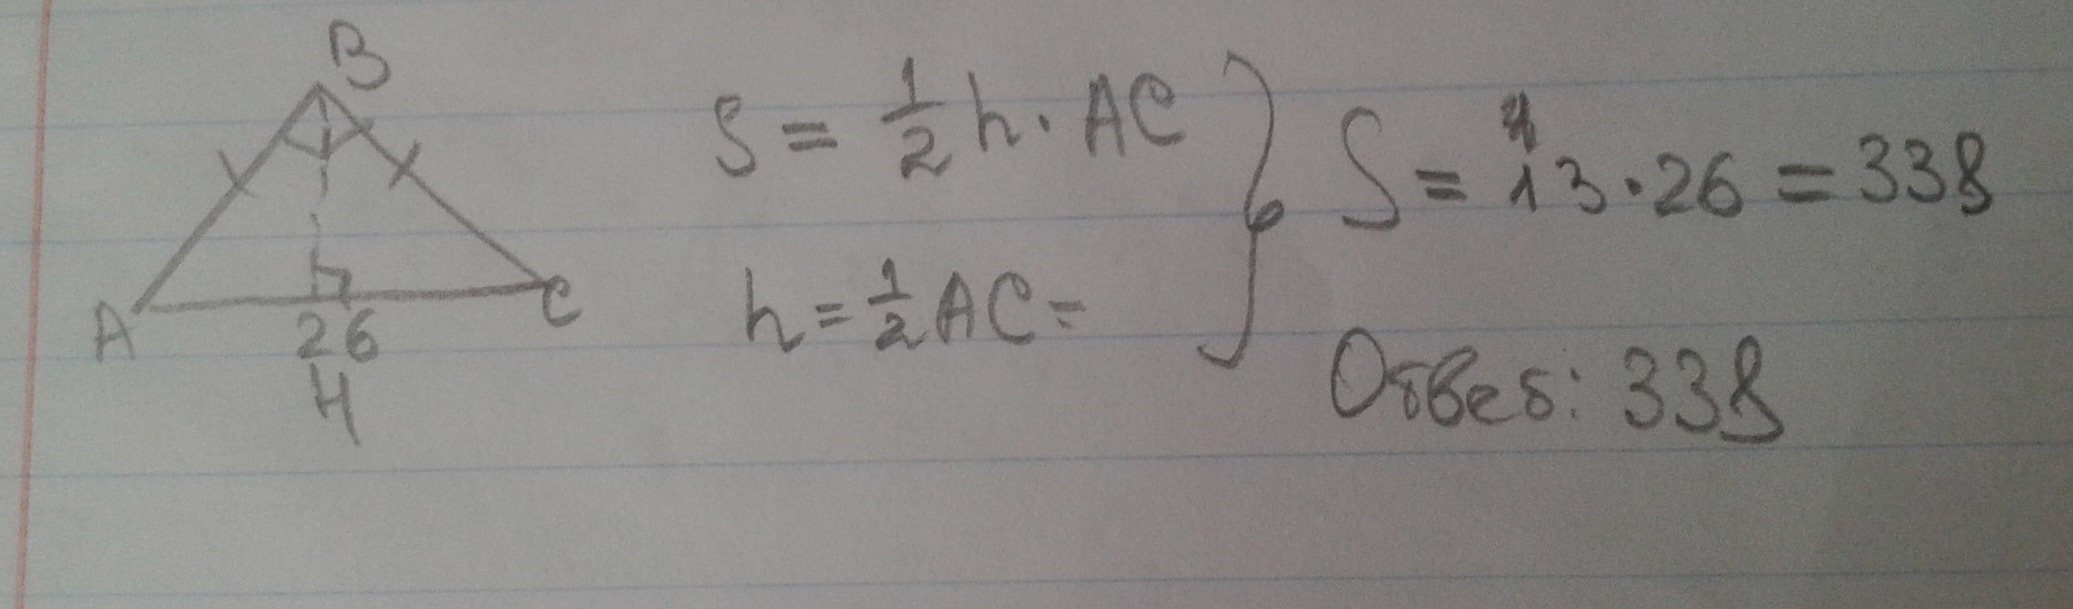 B
A
C
26
H
S = 1/2 h · AC
h = 1/2 AC =
S = 13 · 26 = 338
Ответ: 338